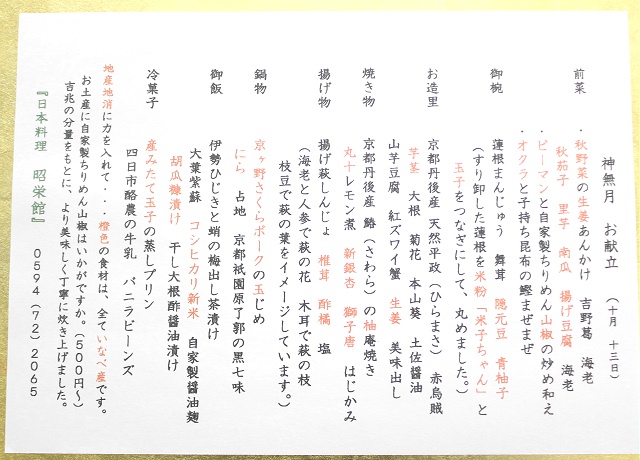 神無月　お献立　（十月　十三日）
前菜
・秋野菜の生姜あんかけ　吉野葛　海老
秋茄子　里芋　南瓜　揚げ豆腐　海老
・ピーマンと自家製ちりめん山椒の炒め和え
・オクラと子持ち昆布の鰹まぜまぜ
御椀
蓮根まんじゅう　舞茸　隠元豆　青柚子
（すり卸した蓮根を米粉「米子ちゃん」と
玉子をつなぎにして、丸めました。）
お造里
京都丹後産　天然平政（ひらまさ）　赤烏賊
芋茎　大根　菊花　本山葵　土佐醤油
山芋豆腐　紅ズワイ蟹　生姜　美味出し
焼き物
京都丹後産　鰆（さわら）の柚庵焼き
丸十レモン煮　新銀杏　獅子唐　はじかみ
揚げ物
揚げ萩しんじょ　椎茸　酢橘　塩
（海老と人参で萩の花　木耳で萩の枝
枝豆で萩の葉をイメージしています。）
鍋物
京ヶ野さくらポークの玉じめ
にら　占地　京都祇園原了郭の黒七味
御飯
伊勢ひじきと蛸の梅出し茶漬け
大葉紫蘇　コシヒカリ新米　自家製醤油麹
胡瓜糠漬け　干し大根酢醤油漬け
冷菓子
産みたて玉子の蒸しプリン
四日市酪農の牛乳　バニラビーンズ
地産地消に力を入れて・・・橙色の食材は、全ていなべ産です。
お土産に自家製ちりめん山椒はいかがですか。（５００円〜）
吉兆の分量をもとに、より美味しく丁寧に炊き上げました。
『日本料理　昭栄館』　０５９４（７２）２０６５